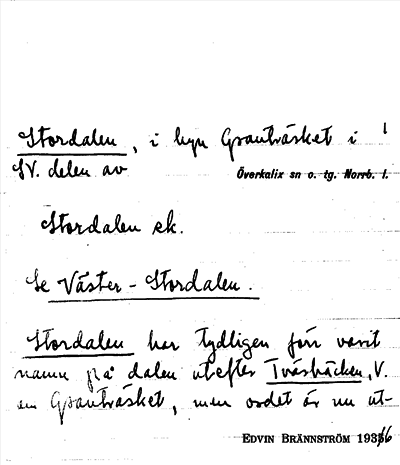 Stordalen, i byn Granträsket i
SV. delen av Överkalix sn o. tg. Norrb. l.
Stordalen ek.
Se Väster-Stordalen.
Stordalen har tydligen förr varit
namn på dalen utefter Tväsbäcken, V.
om Granträsket, men ordet är nu ut-
EDVIN BRÄNNSTRÖM 1936